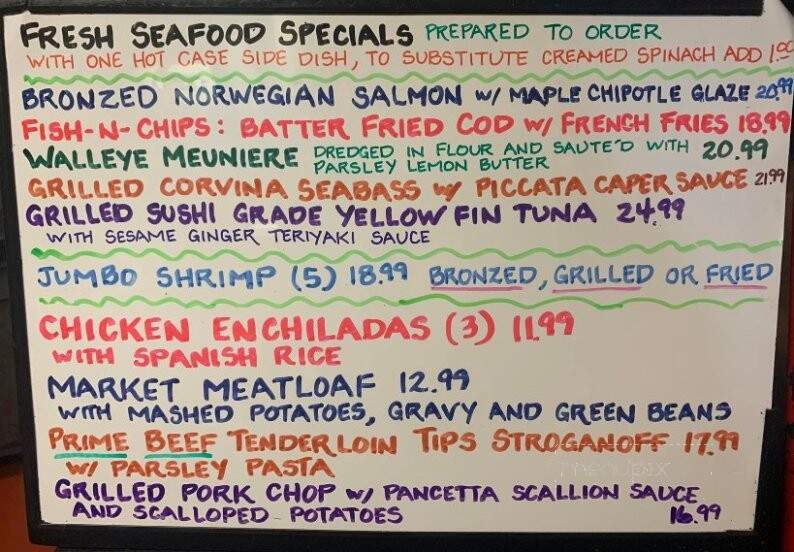 FRESH SEAFOOD SPECIALS PREPARED TO ORDER
WITH ONE HOT CASE SIDE DISH, TO SUBSTITUTE CREAMED SPINACH ADD 1.00
BRONZED NORWEGIAN SALMON W/ MAPLE CHIPOTLE GLAZE 20.99
FISH-N-CHIPS: BATTER FRIED COD W/ FRENCH FRIES 18.99
WALLEYE MEUNIERE DREDGED IN FLOUR AND SAUTE'D WITH 20.99
PARSLEY LEMON BUTTER
GRILLED CORVINA SEABASS W/ PICCATA CAPER SAUCE 21.99
GRILLED SUSHI GRADE YELLOW FIN TUNA 24.99
WITH SESAME GINGER TERIYAKI SAUCE
JUMBO SHRIMP (5) 18.99 BRONZED, GRILLED OR FRIED
CHICKEN ENCHILADAS (3) 11.99
WITH SPANISH RICE
MARKET MEATLOAF 12.99
WITH MASHED POTATOES, GRAVY AND GREEN BEANS
PRIME BEEF TENDERLOIN TIPS STROGANOFF 17.99
W/ PARSLEY PASTA
GRILLED PORK CHOP W/ PANCETTA SCALLION SAUCE
AND SCALLOPED POTATOES 16.99